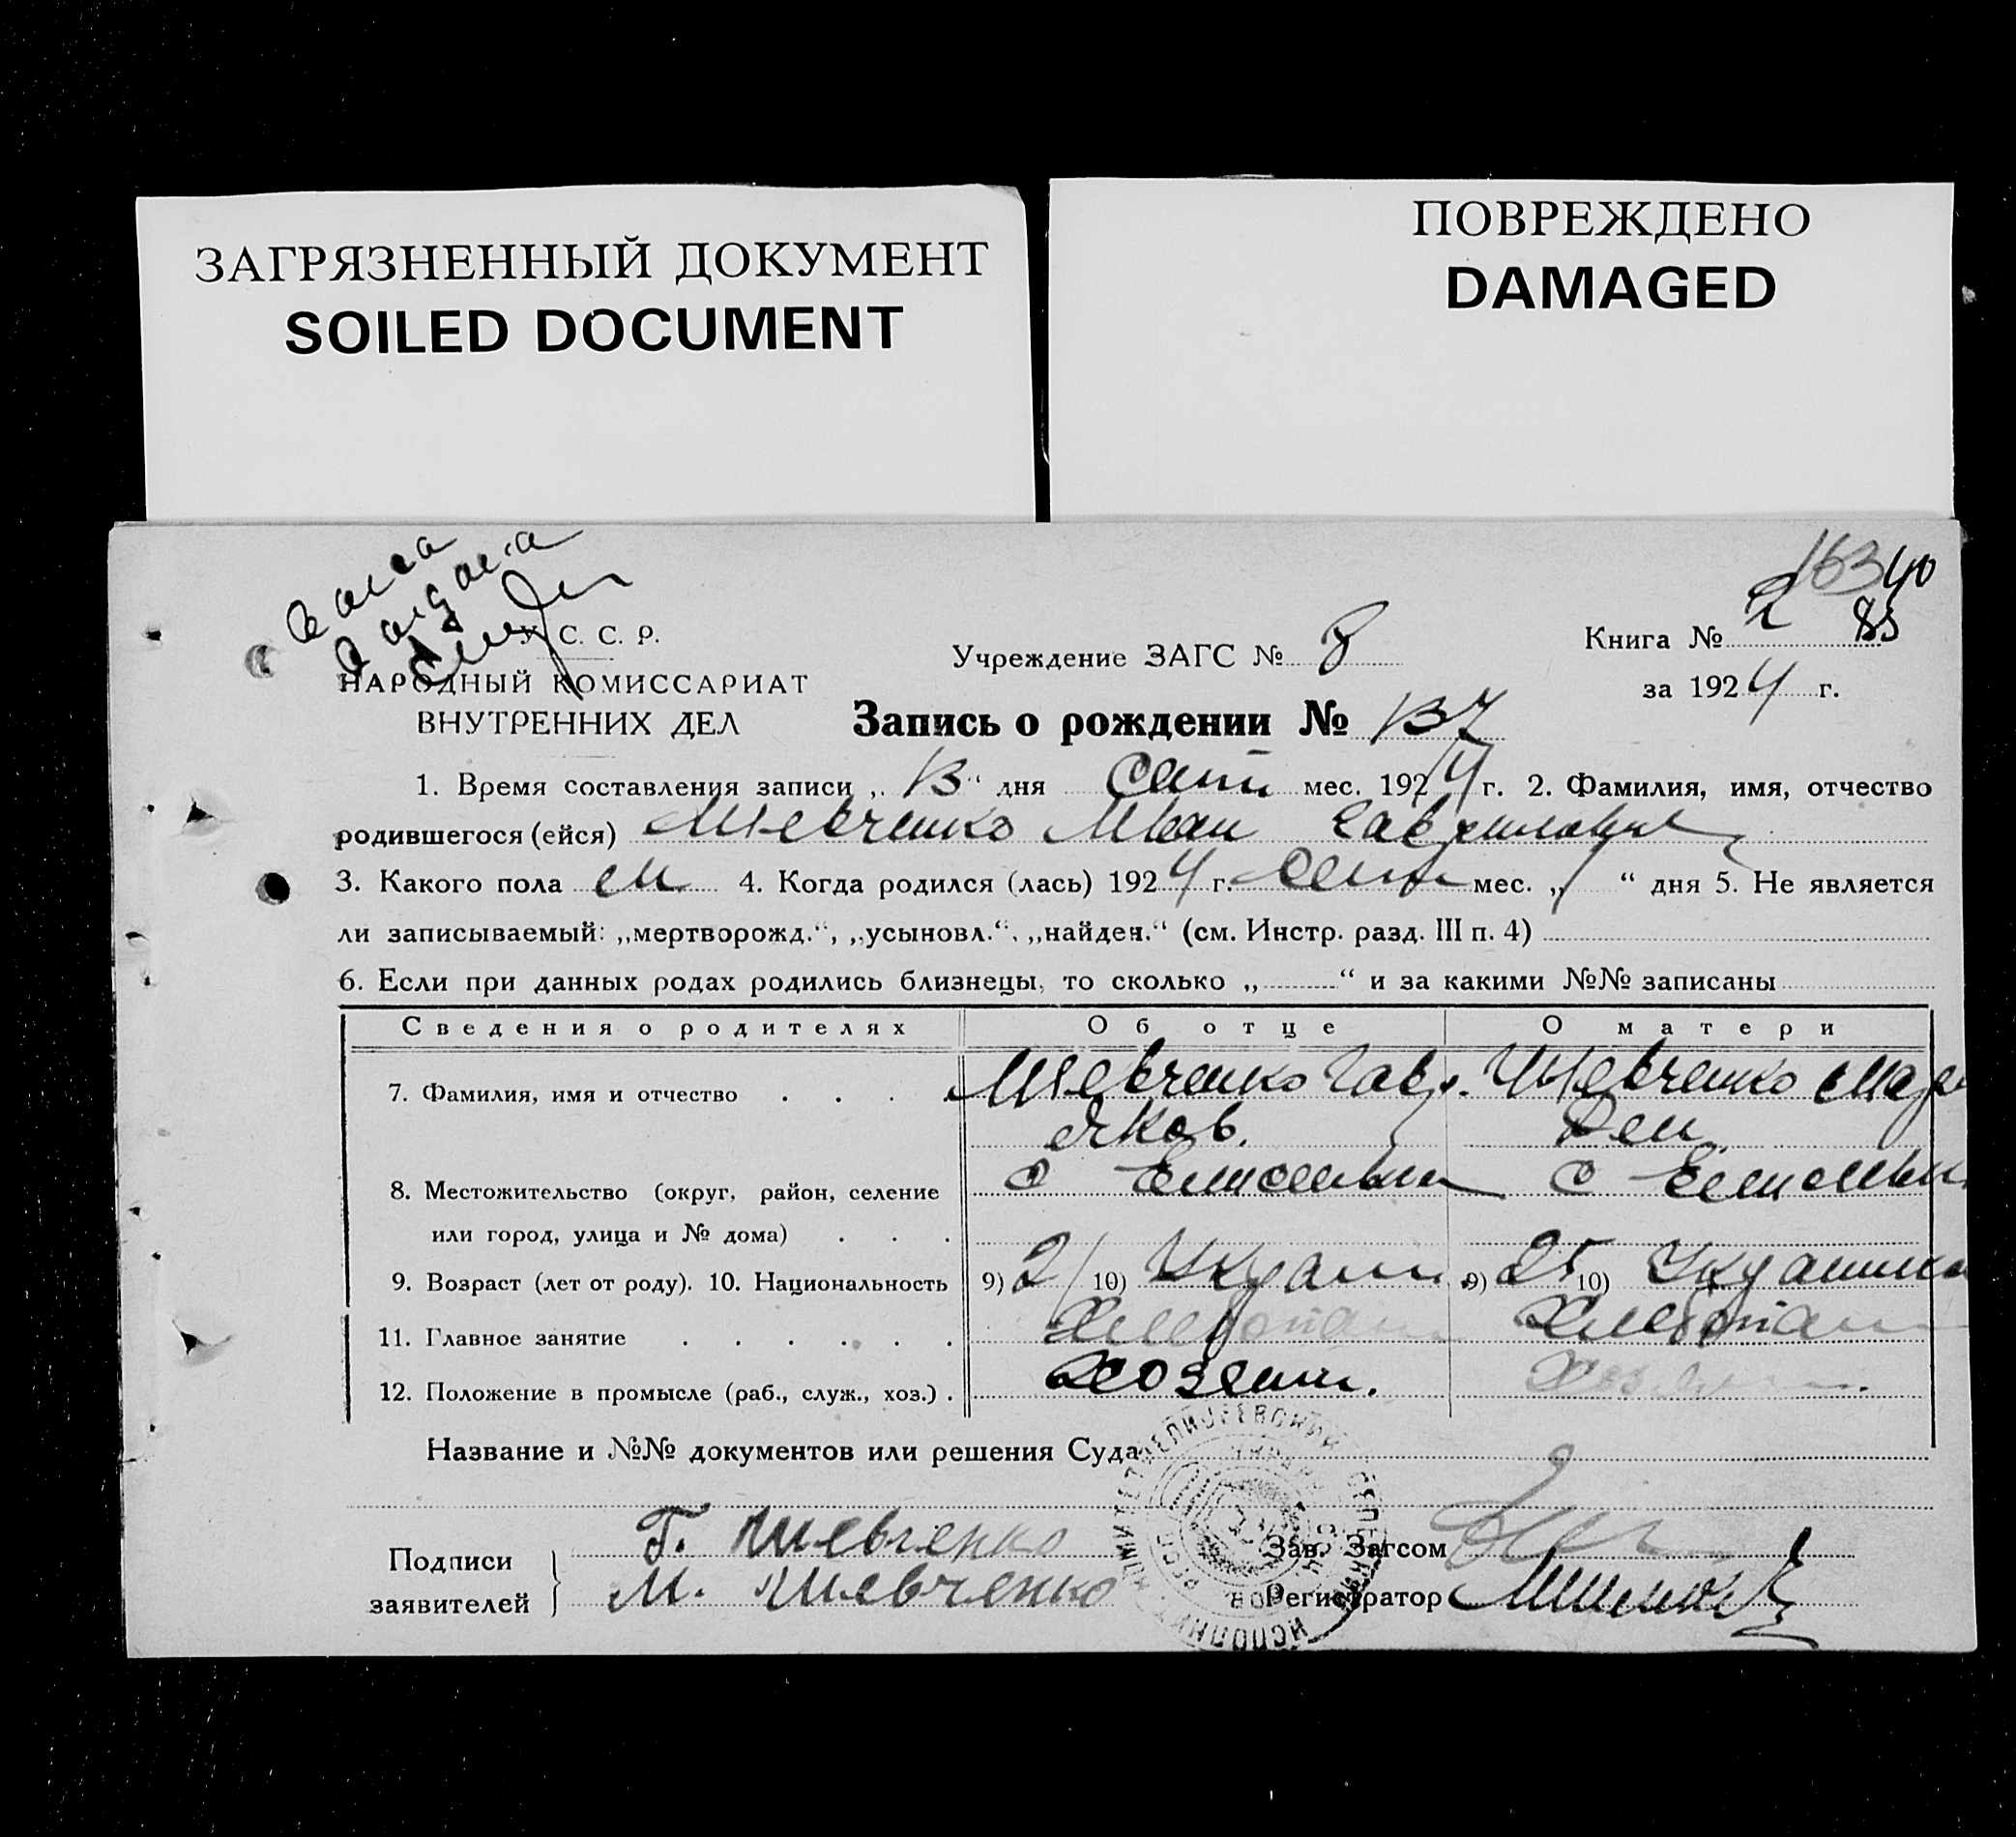 ЗАГРЯЗНЕННЫЙ ДОКУМЕНТ
SOILED DOCUMENT
ПОВРЕЖДЕНО
DAMAGED
163 40
У. С. С. Р.
НАРОДНЫЙ КОМИССАРИАТ
ВНУТРЕННИХ ДЕЛ
Учреждение ЗАГС № 8
Книга № 2 85
за 1924 г.
Запись о рождении № 137
1. Время составления записи „13“ дня Сент мес. 1924 г. 2. Фамилия, имя, отчество
родившегося (ейся) Шевченко Иван Гаврилович
3. Какого пола м 4. Когда родился (лась) 1924 г. Сент мес. „1“ дня 5. Не является
ли записываемый: „мертворожд.“, „усыновл.“, „найден.“ (см. Инстр. разд. III п. 4)
6. Если при данных родах родились близнецы, то сколько „ “ и за какими №№ записаны
Сведения о родителях Об отце О матери
7. Фамилия, имя и отчество . . . . Шевченко Гавр. Шевченко Мар
Яков. Дем
8. Местожительство (округ, район, селение с с
или город, улица и № дома) . . .
9. Возраст (лет от роду). 10. Национальность 9) 21 10) Украин. 9) 25 10) Украинка
11. Главное занятие . . . . . . Хлебопаш Хлебопаш
12. Положение в промысле (раб., служ., хоз.) . хозяин.
Название и №№ документов или решения Суда
Подписи
заявителей
Г. Шевченко
М. Шевченко
Зав. Загсом
Регистратор